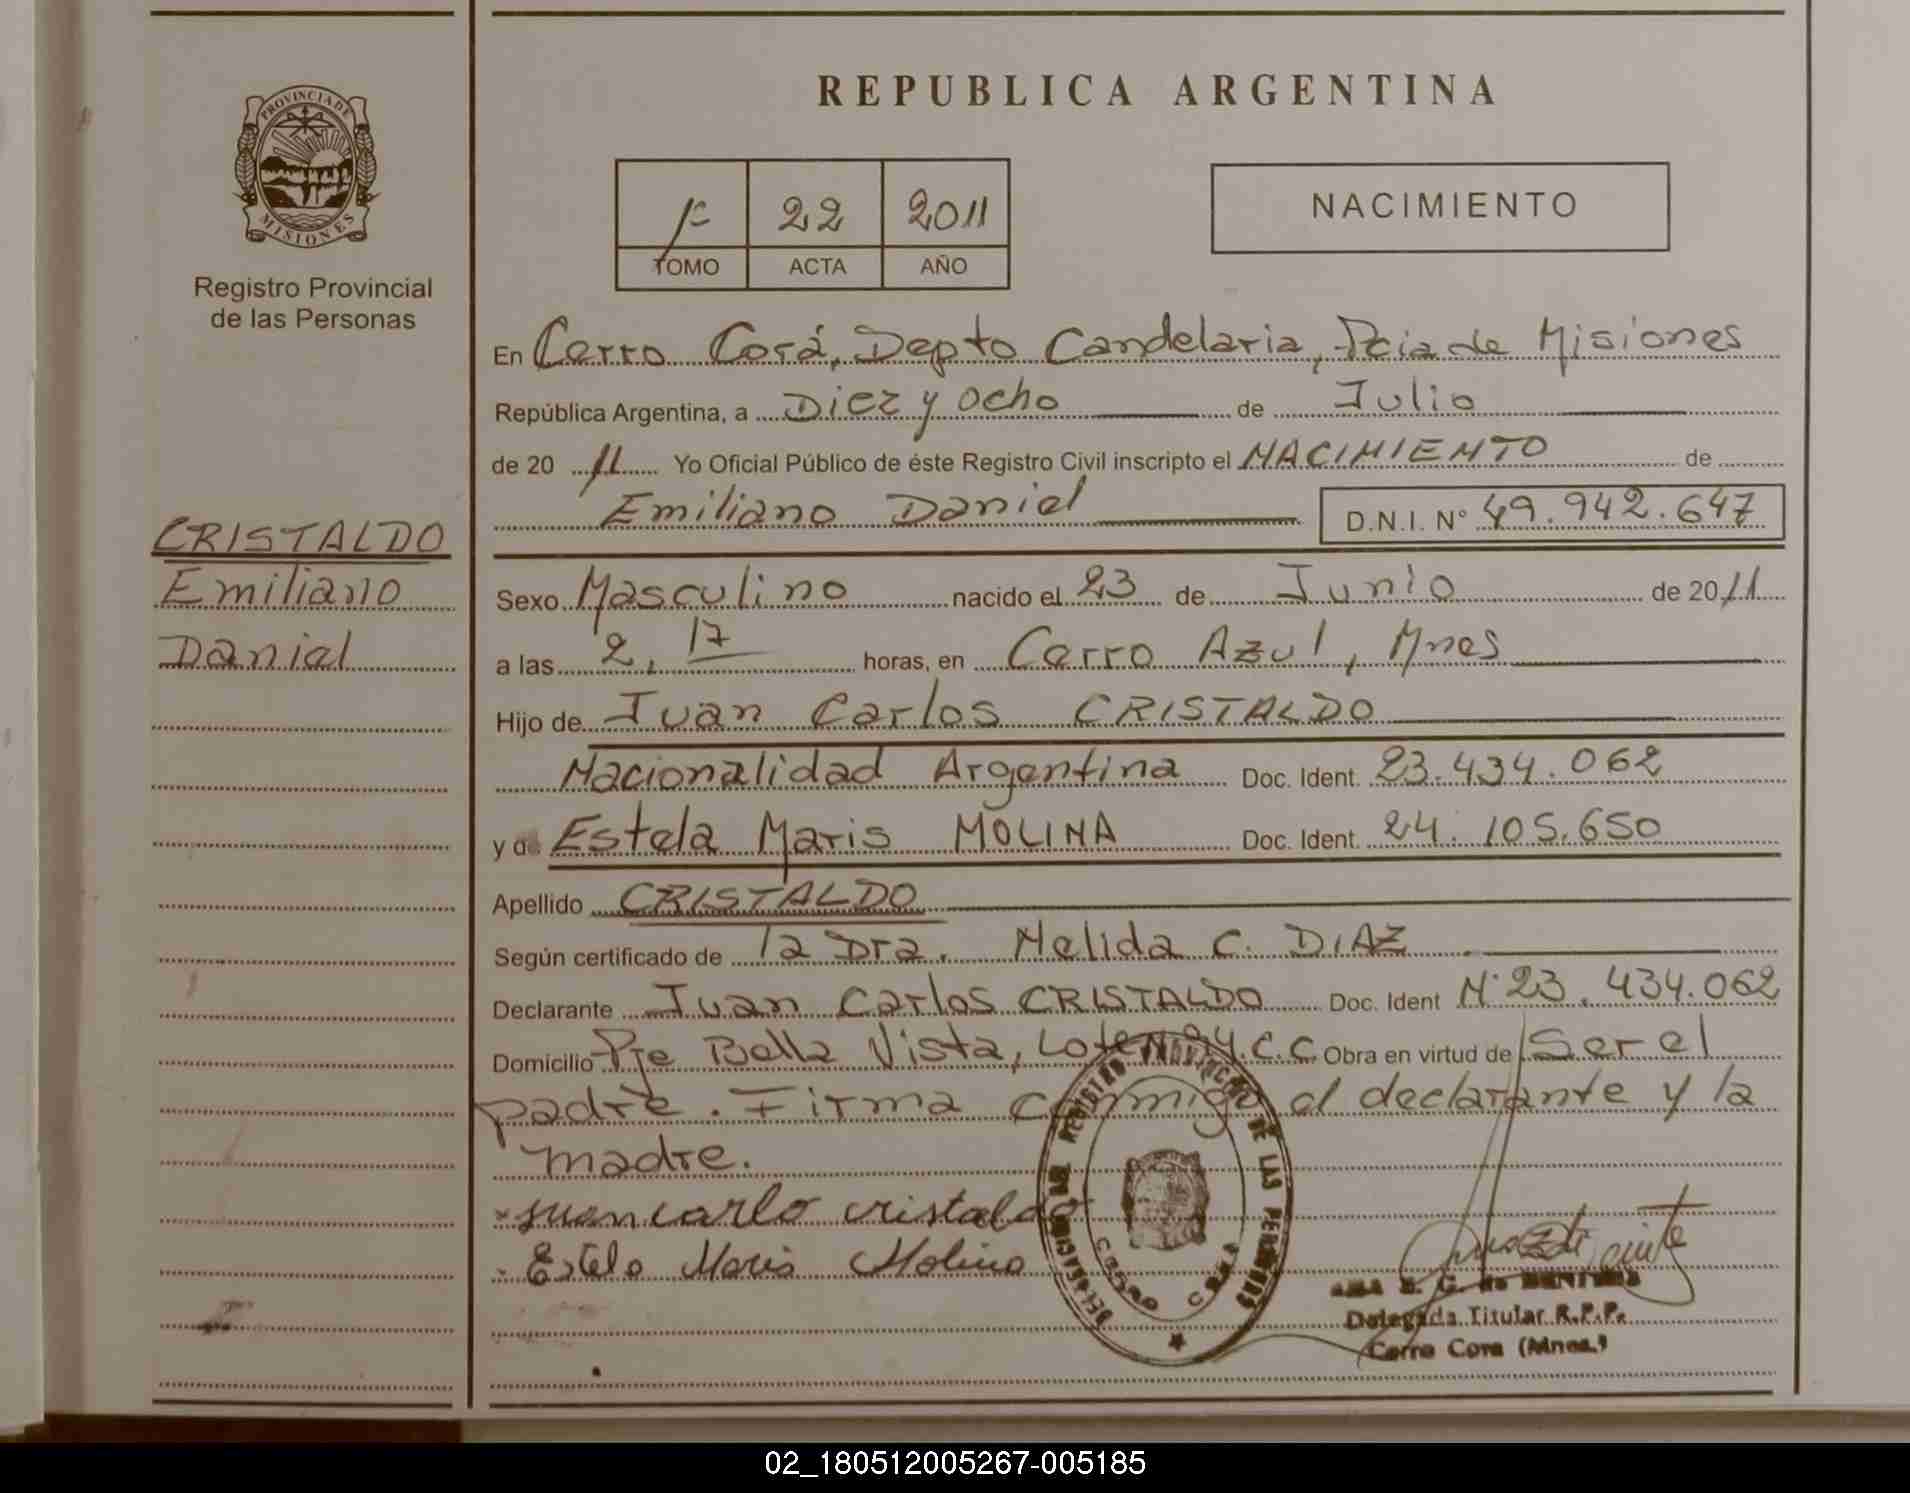 PROVINCIA DE
MISIONES
Registro Provincial
de las Personas
CRISTALDO
Emiliano
Daniel
REPUBLICA ARGENTINA
1º 22 2011
TOMO ACTA AÑO
NACIMIENTO
En Cerro Corá, Depto Candelaria, Pcia de Misiones
República Argentina, a Diez y ocho de Julio
de 20 11 Yo Oficial Público de éste Registro Civil inscripto el NACIMIENTO de
Emiliano Daniel D.N.I. Nº 49.942.647
Sexo Masculino nacido el 23 de Junio de 2011
a las 2,17 horas, en Cerro Azul, Mnes
Hijo de Juan Carlos CRISTALDO
Nacionalidad Argentina Doc. Ident. 23.434.062
y de Estela Maris MOLINA Doc. Ident. 24.105.650
Apellido CRISTALDO
Según certificado de la Dra. Nelida C. DIAZ
Declarante Juan Carlos CRISTALDO Doc. Ident Nº 23.434.062
Domicilio Pje Bella Vista, Lote C.C Obra en virtud de Ser el
padre. Firma conmigo el declarante y la
madre.
juan carlo cristaldo
Estela Maris Molina
DELEGACION DEL REGISTRO PROVINCIAL DE LAS PERSONAS
CERRO CORA
ANA E. G. de BENITEZ
Delegada Titular R.P.P.
Cerro Cora (Mnes.)
02_180512005267-005185